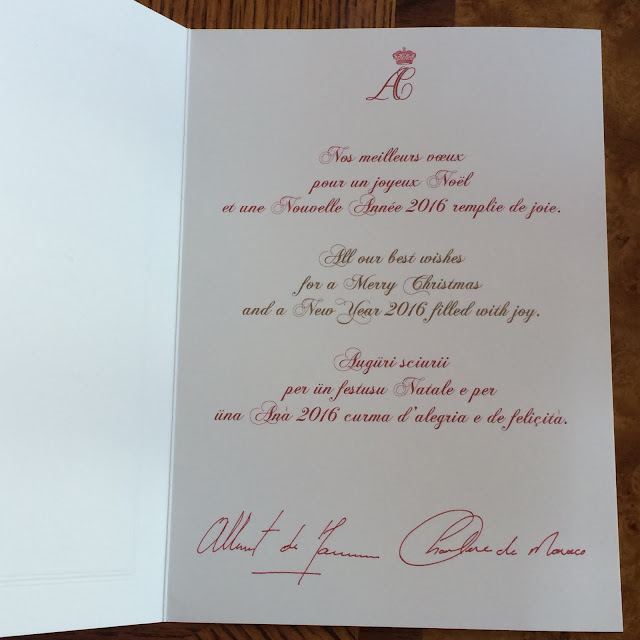 AC
Nos meilleurs vœux
pour un joyeux Noël
et une Nouvelle Année 2016 remplie de joie.
All our best wishes
for a Merry Christmas
and a New Year 2016 filled with joy.
Augüri sciurii
per ün festusu Natale e per
üna Anà 2016 curma d'alegria e de feliçità.
Albert de Monaco Charlene de Monaco